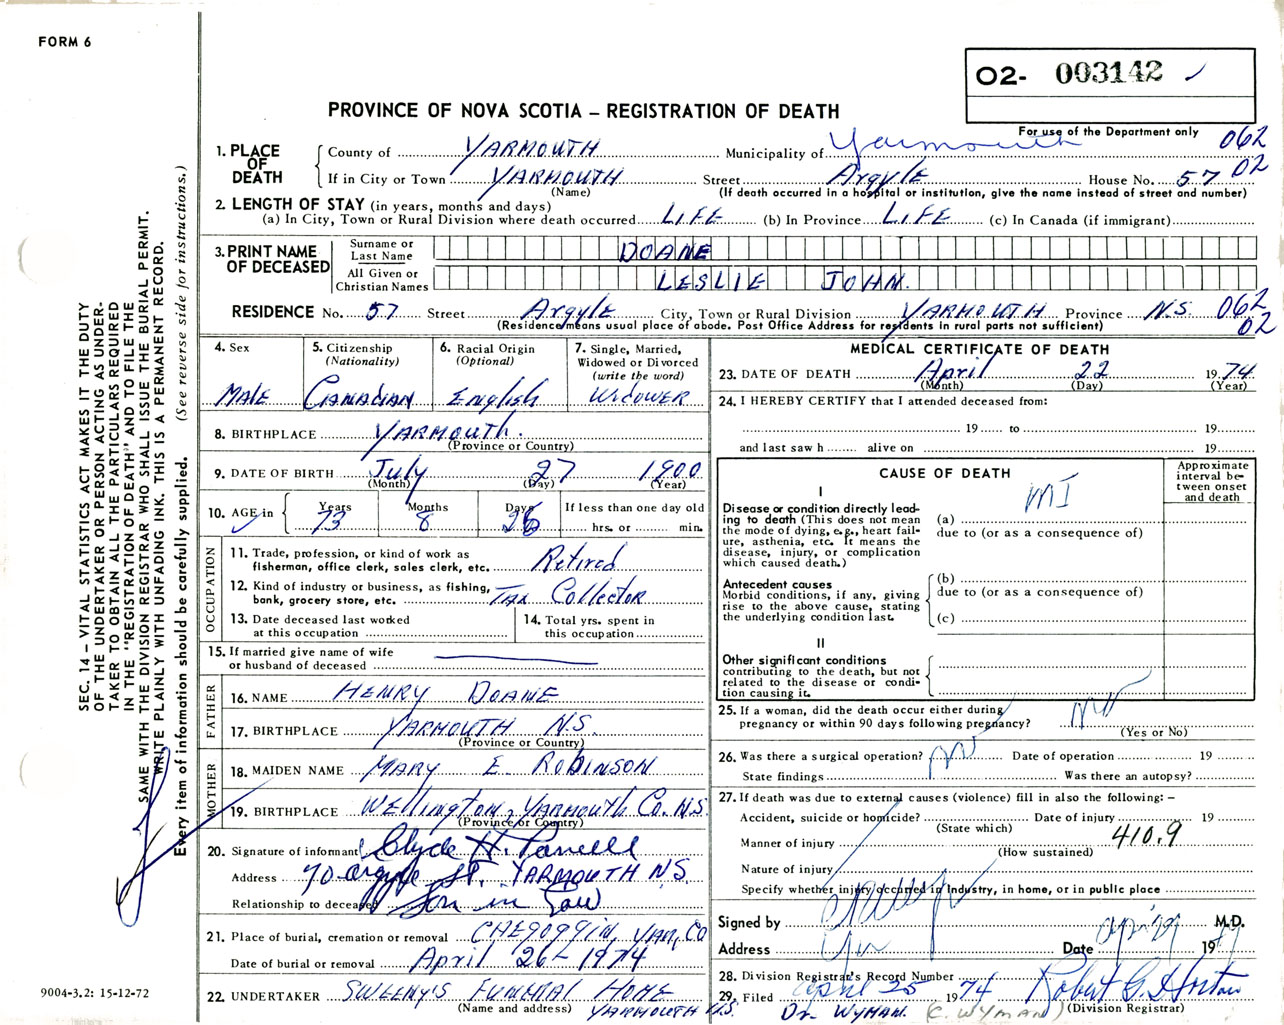 FORM 6
O2- 003142
PROVINCE OF NOVA SCOTIA – REGISTRATION OF DEATH
For use of the Department only
062
02
1. PLACE OF DEATH
County of YARMOUTH Municipality of Yarmouth
If in City or Town YARMOUTH Street Argyle House No. 57
(Name) (If death occurred in a hospital or institution, give the name instead of street and number)
2. LENGTH OF STAY (in years, months and days)
(a) In City, Town or Rural Division where death occurred LIFE (b) In Province LIFE (c) In Canada (if immigrant)
3. PRINT NAME OF DECEASED
Surname or Last Name DOANE
All Given or Christian Names LESLIE JOHN.
RESIDENCE No. 57 Street Argyle City, Town or Rural Division YARMOUTH Province N.S. 062
02
(Residence means usual place of abode. Post Office Address for residents in rural parts not sufficient)
4. Sex
MALE
5. Citizenship
(Nationality)
CANADIAN
6. Racial Origin
(Optional)
English
7. Single, Married,
Widowed or Divorced
(write the word)
WIDOWER
8. BIRTHPLACE YARMOUTH.
(Province or Country)
9. DATE OF BIRTH July 27 1900
(Month) (Day) (Year)
10. AGE in Years Months Days If less than one day old
73 8 26 hrs. or min.
OCCUPATION
11. Trade, profession, or kind of work as
fisherman, office clerk, sales clerk, etc. Retired
12. Kind of industry or business, as fishing,
bank, grocery store, etc. TAX Collector
13. Date deceased last worked
at this occupation
14. Total yrs. spent in
this occupation
15. If married give name of wife
or husband of deceased
FATHER
16. NAME HENRY DOANE
17. BIRTHPLACE YARMOUTH N.S.
(Province or Country)
MOTHER
18. MAIDEN NAME MARY E. ROBINSON
19. BIRTHPLACE Wellington, Yarmouth Co. N.S.
(Province or Country)
20. Signature of informant Clyde H.
Address 70 Argyle St. YARMOUTH N.S.
Relationship to deceased Son in Law
21. Place of burial, cremation or removal CHEGOGGIN, YAR, CO
Date of burial or removal April 26 – 1974
22. UNDERTAKER SWEENY'S FUNERAL HOME
(Name and address) YARMOUTH N.S.
MEDICAL CERTIFICATE OF DEATH
23. DATE OF DEATH April 22 1974
(Month) (Day) (Year)
24. I HEREBY CERTIFY that I attended deceased from:
19 to 19
and last saw h alive on 19
CAUSE OF DEATH
Approximate
interval be-
tween onset
and death
I
Disease or condition directly lead-
ing to death (This does not mean
the mode of dying, e.g., heart fail-
ure, asthenia, etc. It means the
disease, injury, or complication
which caused death.)
(a) MI
due to (or as a consequence of)
Antecedent causes
Morbid conditions, if any, giving
rise to the above cause, stating
the underlying condition last.
(b)
due to (or as a consequence of)
(c)
II
Other significant conditions
contributing to the death, but not
related to the disease or condi-
tion causing it.
25. If a woman, did the death occur either during
pregnancy or within 90 days following pregnancy?
(Yes or No)
26. Was there a surgical operation? no Date of operation 19
State findings Was there an autopsy?
27. If death was due to external causes (violence) fill in also the following: –
Accident, suicide or homicide? Date of injury 19
(State which)
410.9
Manner of injury
(How sustained)
Nature of injury
Specify whether injury occurred in Industry, in home, or in public place
Signed by M.D.
Address Date 19
28. Division Registrar's Record Number
29. Filed April 25 1974 Robert G. Horton
(Division Registrar)
Dr. WYMAN. (C. WYMAN)
SEC. 14 – VITAL STATISTICS ACT MAKES IT THE DUTY
OF THE UNDERTAKER OR PERSON ACTING AS UNDER-
TAKER TO OBTAIN ALL THE PARTICULARS REQUIRED
IN THE "REGISTRATION OF DEATH" AND TO FILE THE
SAME WITH THE DIVISION REGISTRAR WHO SHALL ISSUE THE BURIAL PERMIT.
WRITE PLAINLY WITH UNFADING INK. THIS IS A PERMANENT RECORD.
Every item of information should be carefully supplied. (See reverse side for instructions.)
9004-3.2: 15-12-72